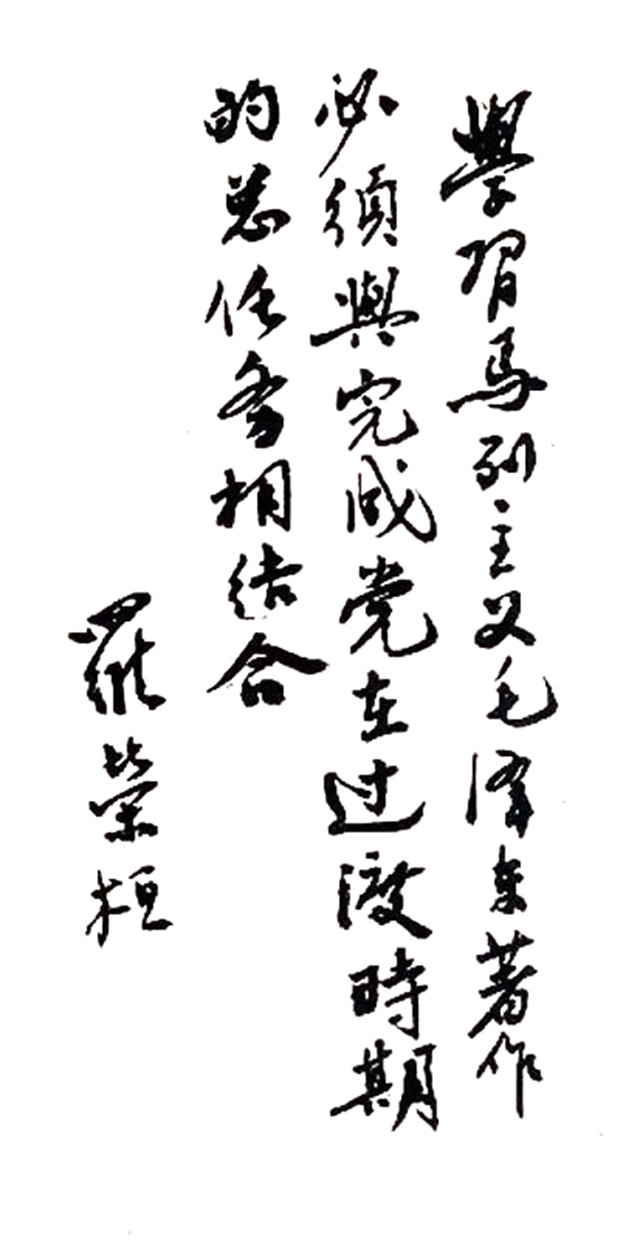 學習馬列主义毛泽东著作
必須與完成党在过渡時期
的总任务相结合
羅榮桓